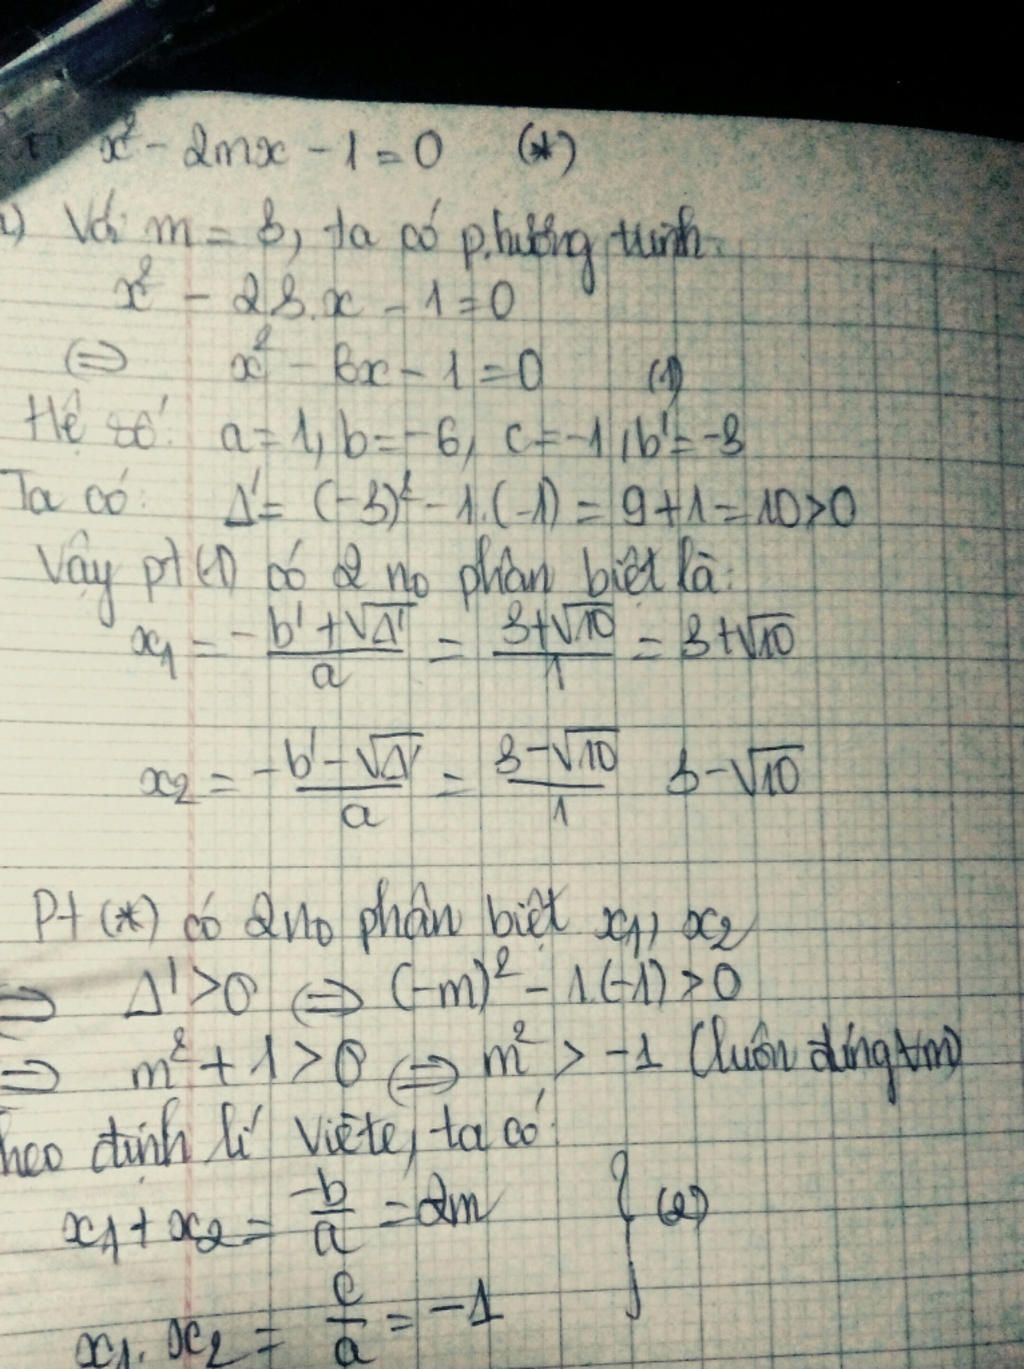 x² - 2mx - 1 = 0 (*)
Với m = 3, ta có phương trình.
x² - 2.3.x - 1 = 0
(=) x² - 6x - 1 = 0 (1)
Hệ số: a = 1, b = -6, c = -1, b' = -3
Ta có: Δ' = (-3)² - 1.(-1) = 9 + 1 = 10 > 0
Vậy pt (1) có 2 no phân biệt là:
x₁ = -b' + √Δ' / a = 3 + √10 / 1 = 3 + √10
x₂ = -b' - √Δ' / a = 3 - √10 / 1 3 - √10
Pt (*) có 2 no phân biệt x₁, x₂
=) Δ' > 0 (=) (-m)² - 1(-1) > 0
=) m² + 1 > 0 (=) m² > -1 (luôn đúng ∀m)
heo định lí Viète, ta có:
x₁ + x₂ = -b / a = 2m } (2)
x₁. x₂ = c / a = -1